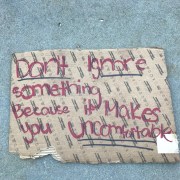 Don't Ignore
something
Because it Makes
you Uncomfortable